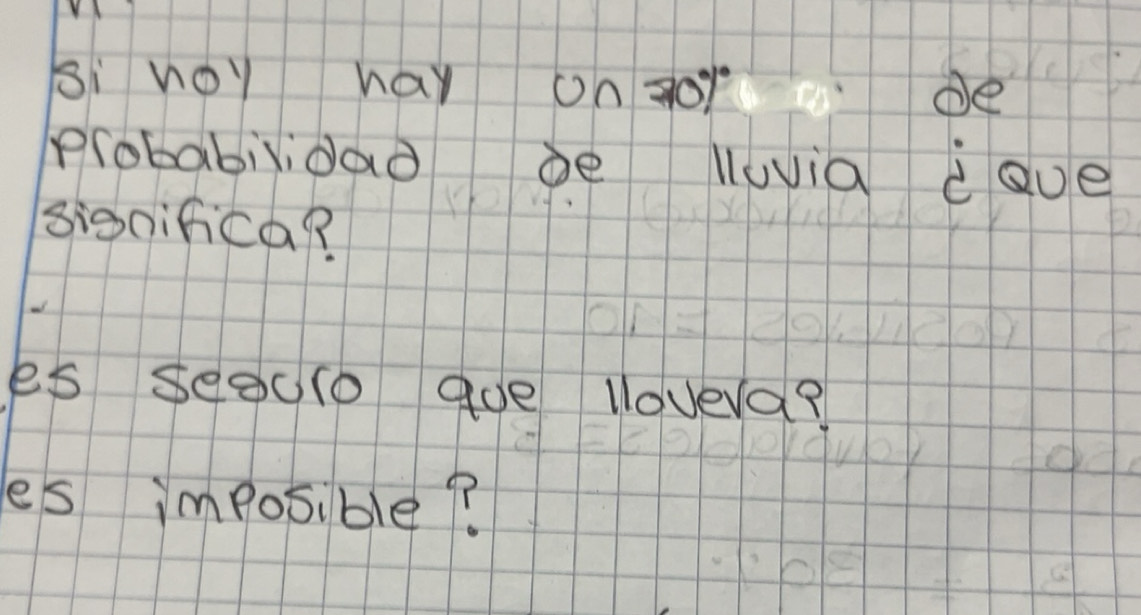 si hoy hay un 70% de
probabilidad de lluvia ¿que
significa?
es seguro que llovera?
es imposible?